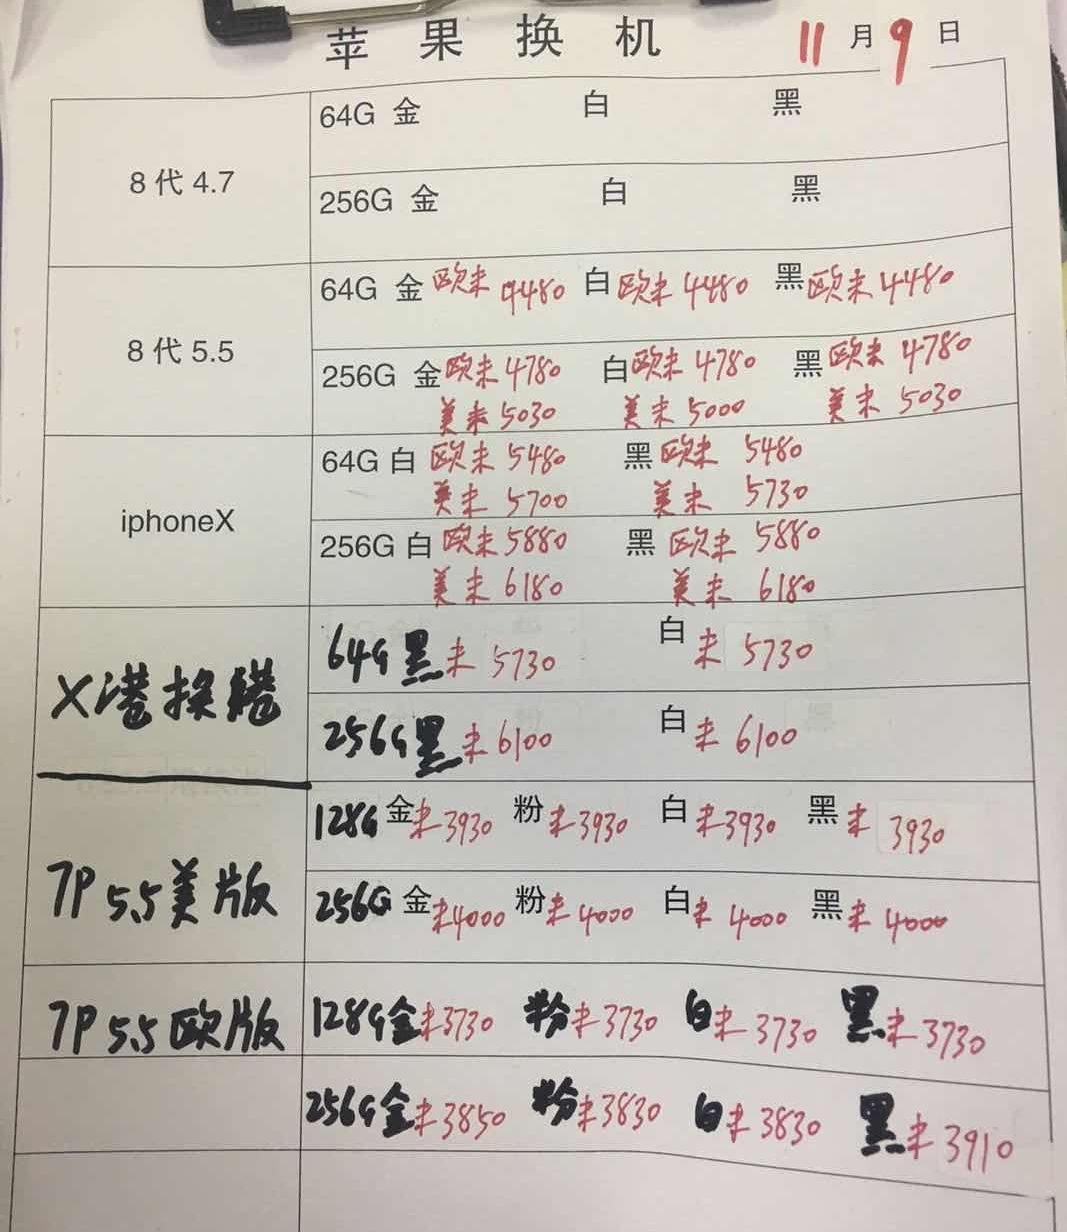 苹果换机 11月9日
8代4.7
64G 金 白 黑
256G 金 白 黑
8代5.5
64G 金 欧未 4480 白 欧未 4480 黑 欧未 4480
256G 金 欧未 4780 白 欧未 4780 黑 欧未 4780
美未 5030 美未 5000 美未 5030
iphoneX
64G 白 欧未 5480 黑 欧未 5480
美未 5700 美未 5730
256G 白 欧未 5880 黑 欧未 5880
美未 6180 美未 6180
X港换港
64G 黑 未 5730 白 未 5730
256G 黑 未 6100 白 未 6100
7P 5.5美版
128G 金 未 3930 粉 未 3930 白 未 3930 黑 未 3930
256G 金 未 4000 粉 未 4000 白 未 4000 黑 未 4000
7P 5.5欧版
128G 金 未 3730 粉 未 3730 白 未 3730 黑 未 3730
256G 金 未 3850 粉 未 3830 白 未 3830 黑 未 3910